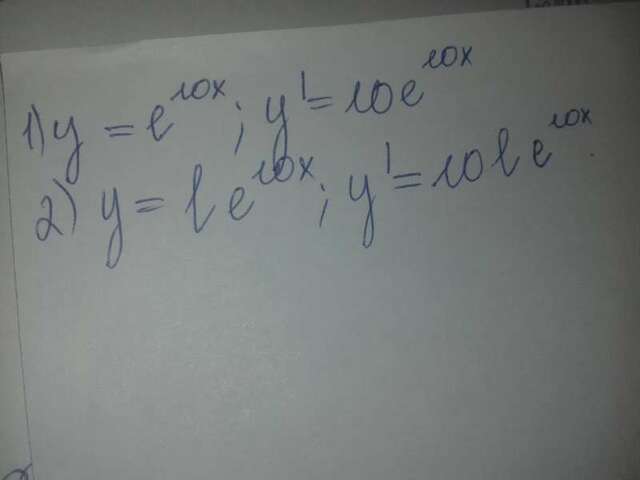 1) y = e^10x ; y' = 10e^10x
2) y = le^10x ; y' = 10le^10x.